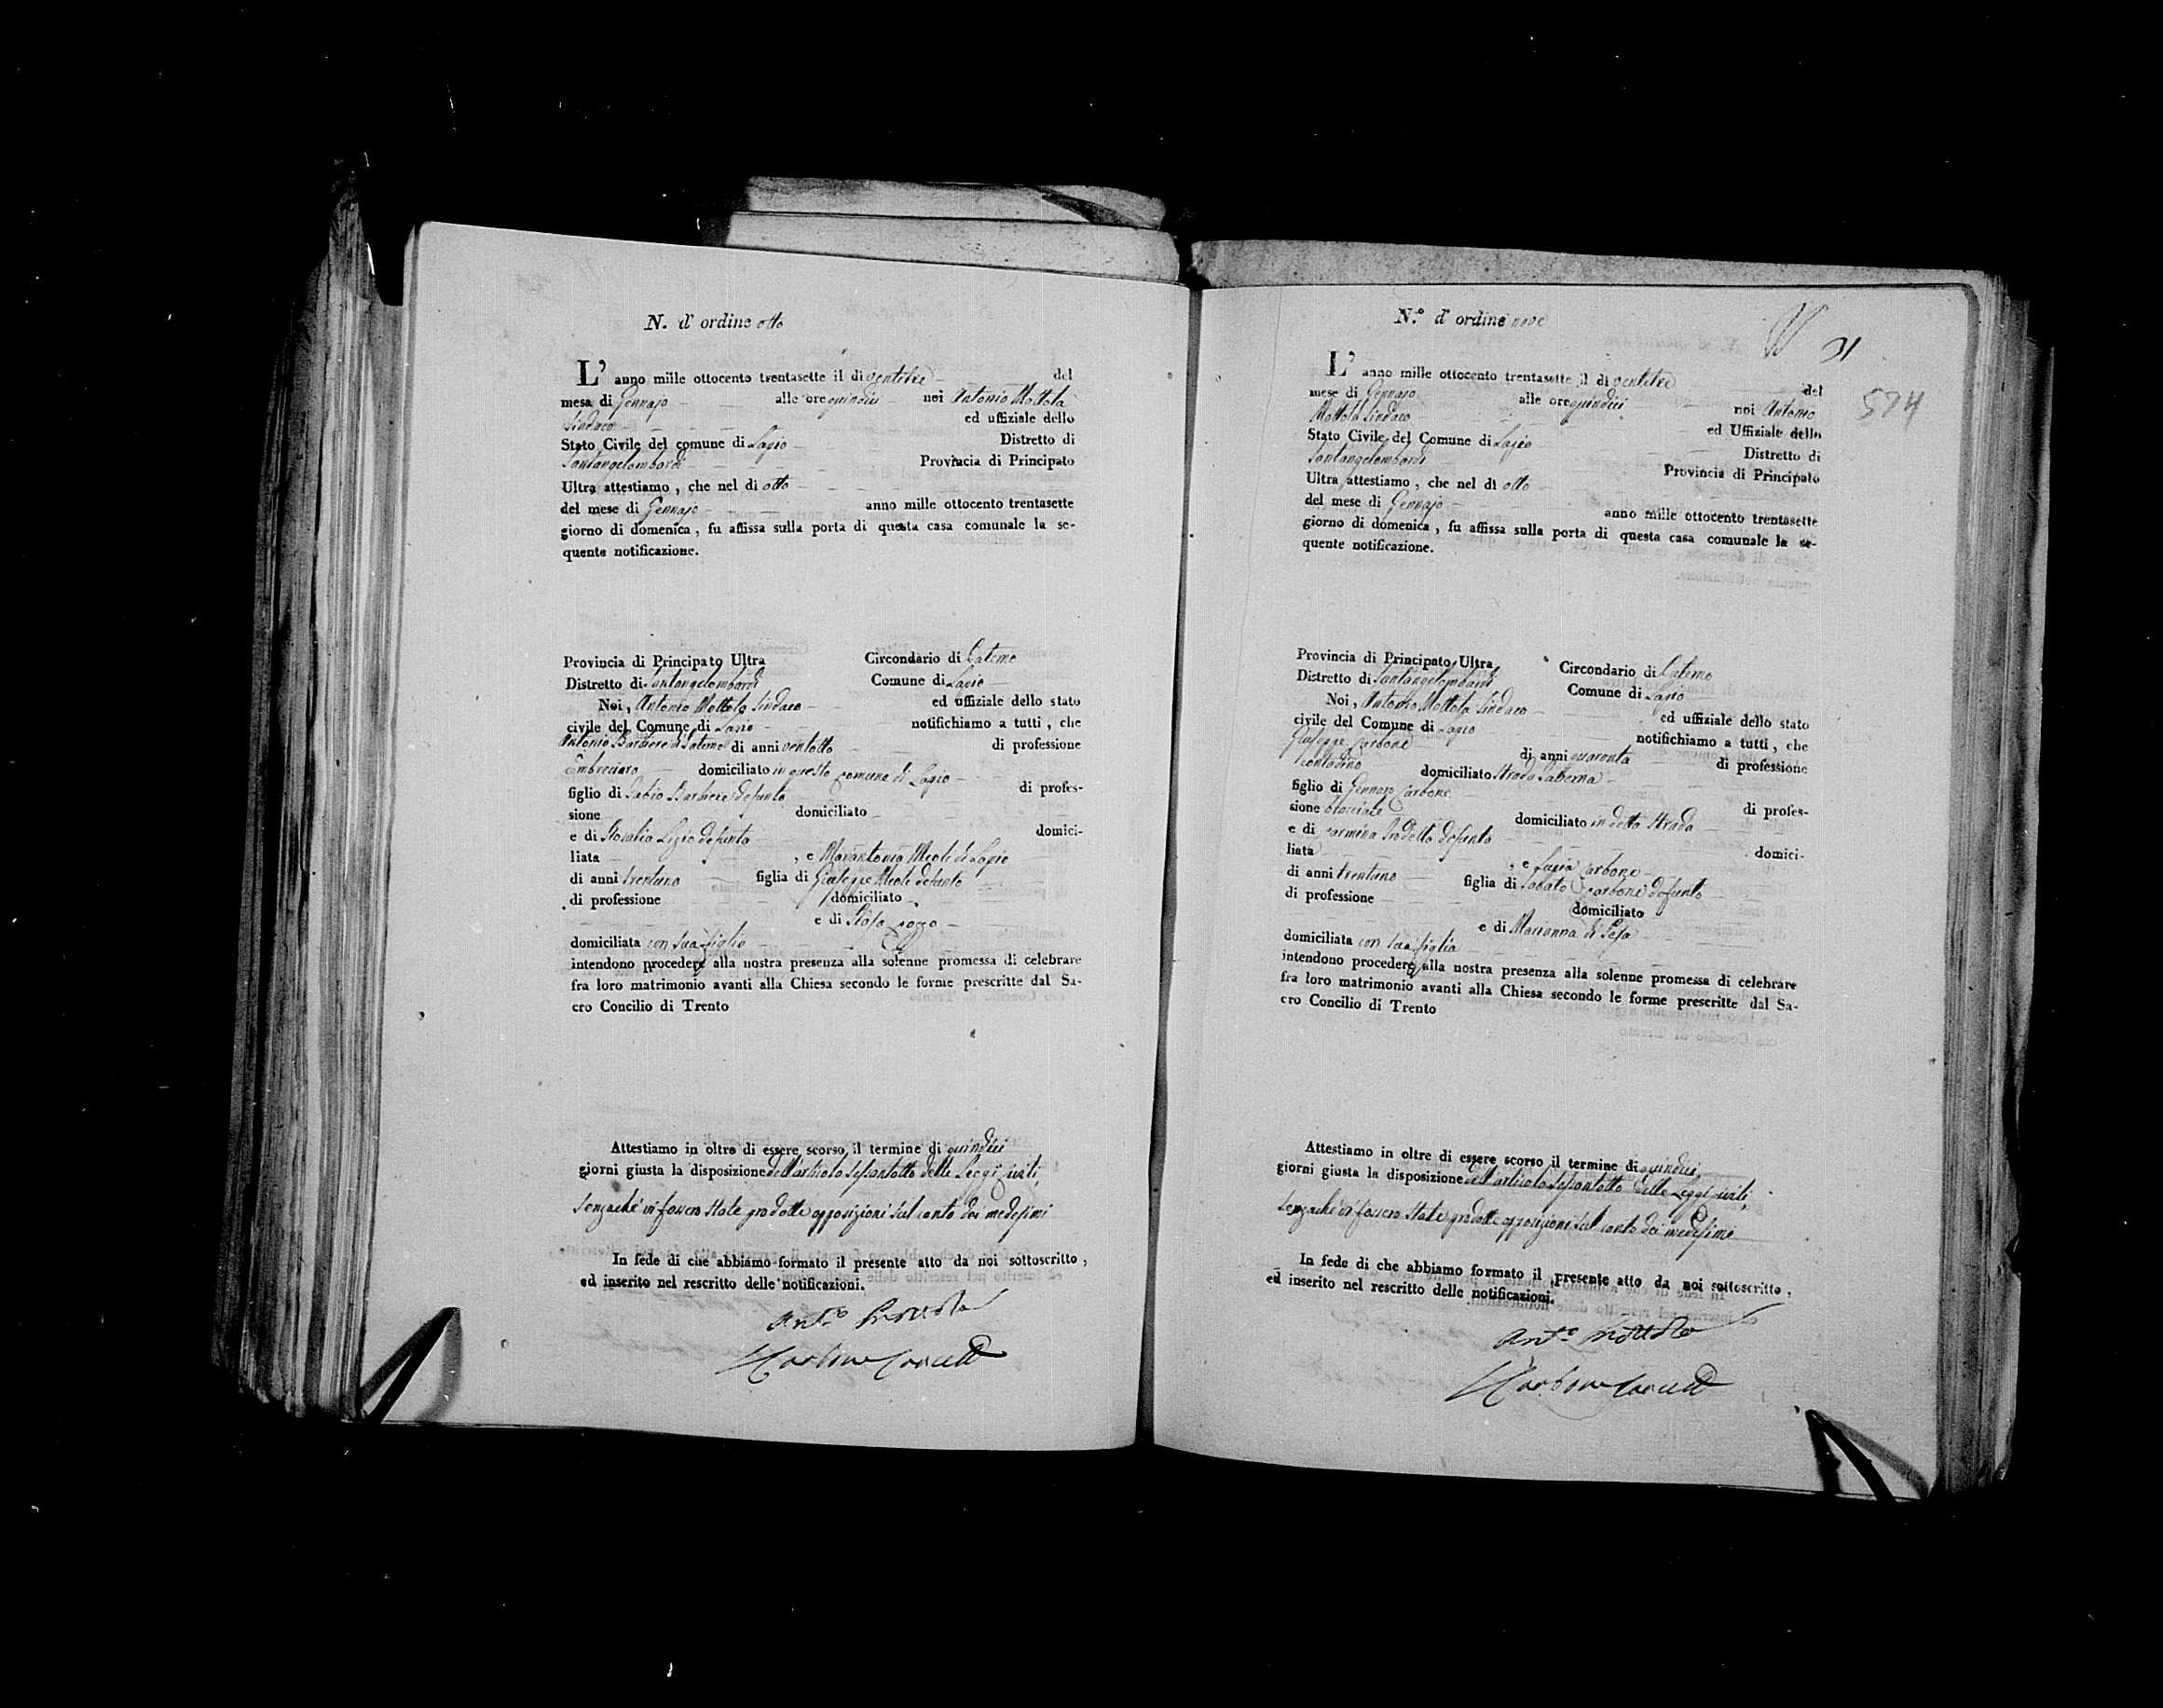 N. d' ordine otto
L' anno mille ottocento trentasette il di ventitre del
mese di Gennajo alle ore quindici noi Antonio Mottola
Sindaco ed uffiziale dello
Stato Civile del comune di Lapio Distretto di
Santangelombardi Provincia di Principato
Ultra attestiamo, che nel di otto
del mese di Gennajo anno mille ottocento trentasette
giorno di domenica, fu affissa sulla porta di questa casa comunale la se-
quente notificazione.
Provincia di Principato Ultra Circondario di Paterno
Distretto di Santangelombardi Comune di Lapio
Noi, Antonio Mottola Sindaco ed uffiziale dello stato
civile del Comune di Lapio notifichiamo a tutti, che
Antonio Barbiere di Paterno di anni ventotto di professione
Embreciaro domiciliato in questo comune di Lapio
figlio di Fabio Barbiere defunto di profes-
sione domiciliato
e di Rosalia defunta domici-
liata , e Mariantonia Meole di Lapio
di anni trentuno figlia di Giuseppe Meole defunto
di professione domiciliato
e di Rosa
domiciliata con sua figlia
intendono procedere alla nostra presenza alla solenne promessa di celebrare
fra loro matrimonio avanti alla Chiesa secondo le forme prescritte dal Sa-
cro Concilio di Trento
Attestiamo in oltre di essere scorso il termine di quindici
giorni giusta la disposizione dell'articolo sessantotto delle Leggi civili,
senzachè vi fossero state prodotte opposizioni sul conto dei medesimi
In fede di che abbiamo formato il presente atto da noi sottoscritto,
ed inserito nel rescritto delle notificazioni.
Ant.o Mottola
N.o d' ordine nove
31
574
L' anno mille ottocento trentasette il di ventitre del
mese di Gennajo alle ore quindici noi Antonio
Mottola Sindaco ed Uffiziale dello
Stato Civile del Comune di Lapio Distretto di
Santangelombardi Provincia di Principato
Ultra attestiamo, che nel di otto
del mese di Gennajo anno mille ottocento trentasette
giorno di domenica, fu affissa sulla porta di questa casa comunale la se-
quente notificazione.
Provincia di Principato Ultra Circondario di Paterno
Distretto di Santangelombardi Comune di Lapio
Noi, Antonio Mottola Sindaco ed uffiziale dello stato
civile del Comune di Lapio notifichiamo a tutti, che
Giuseppe Carbone di anni quaranta di professione
Contadino domiciliato Strada Taverna
figlio di Gennaro Carbone di profes-
sione bracciale domiciliato in detta Strada
e di Carmina defunta domici-
liata , e Lucia Carbone
di anni trentuno figlia di Sabato Carbone defunto
di professione domiciliato
e di Marianna
domiciliata con sua figlia
intendono procedere alla nostra presenza alla solenne promessa di celebrare
fra loro matrimonio avanti alla Chiesa secondo le forme prescritte dal Sa-
cro Concilio di Trento
Attestiamo in oltre di essere scorso il termine di quindici
giorni giusta la disposizione dell'articolo sessantotto delle Leggi civili,
senzachè vi fossero state prodotte opposizioni sul conto dei medesimi
In fede di che abbiamo formato il presente atto da noi sottoscritto,
ed inserito nel rescritto delle notificazioni.
Ant.o Mottola